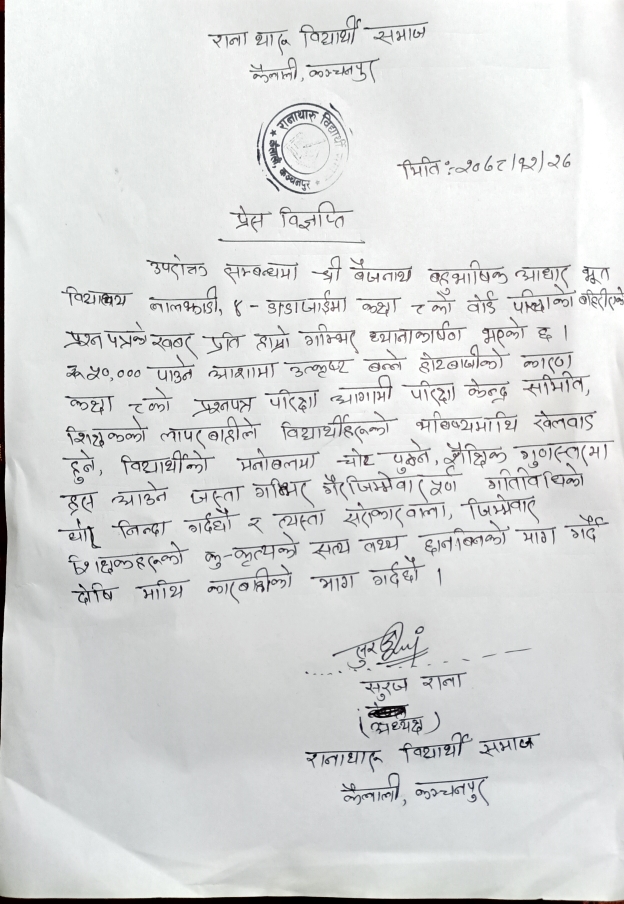 राना थारू विद्यार्थी समाज
कैलाली, कञ्चनपुर
रानाथारु विद्यार्थी समाज
कैलाली, कञ्चनपुर
मिति:- २०७८/१२/२६
प्रेस विज्ञप्ति
उपरोक्त सम्बन्धमा श्री बैजनाथ बहुभाषिक आधार भूत
विद्यालय बालझाडी, ४ - डाडाजाईमा कक्षा ८को वोर्ड परिक्षाको बाहिरीएको
प्रश्न पत्रको खबर प्रति हाम्रो गम्भिर ध्यानाकार्षण भएको छ ।
रू ५०,००० पाउने आशामा उत्कृष्ट बन्ने होडबाजीको कारण
कक्षा ८को प्रश्नपत्र परिक्षा आगामी परिक्षा केन्द्र समिति,
शिक्षकको लापरबाहीले विद्यार्थीहरूको भबिष्यमाथि खेलवाड
हुने, विद्यार्थीको मनोबलमा चोट पुग्ने, शैक्षिक गुणस्तरमा
ह्रास आउने जस्ता गम्भिर गैरजिम्मेवार पूर्ण गतिविधिको
घोर निन्दा गर्दछौ र त्यस्ता सरोकारवाला, जिम्मेवार
शिक्षकहरूको कु-कृत्यको सत्य तथ्य छानबिनको माग गर्दै
दोषि माथि कारबाहीको माग गर्दछौ ।
सुरज राना
(अध्यक्ष)
रानाथारू विद्यार्थी समाज
कैलाली, कञ्चनपुर